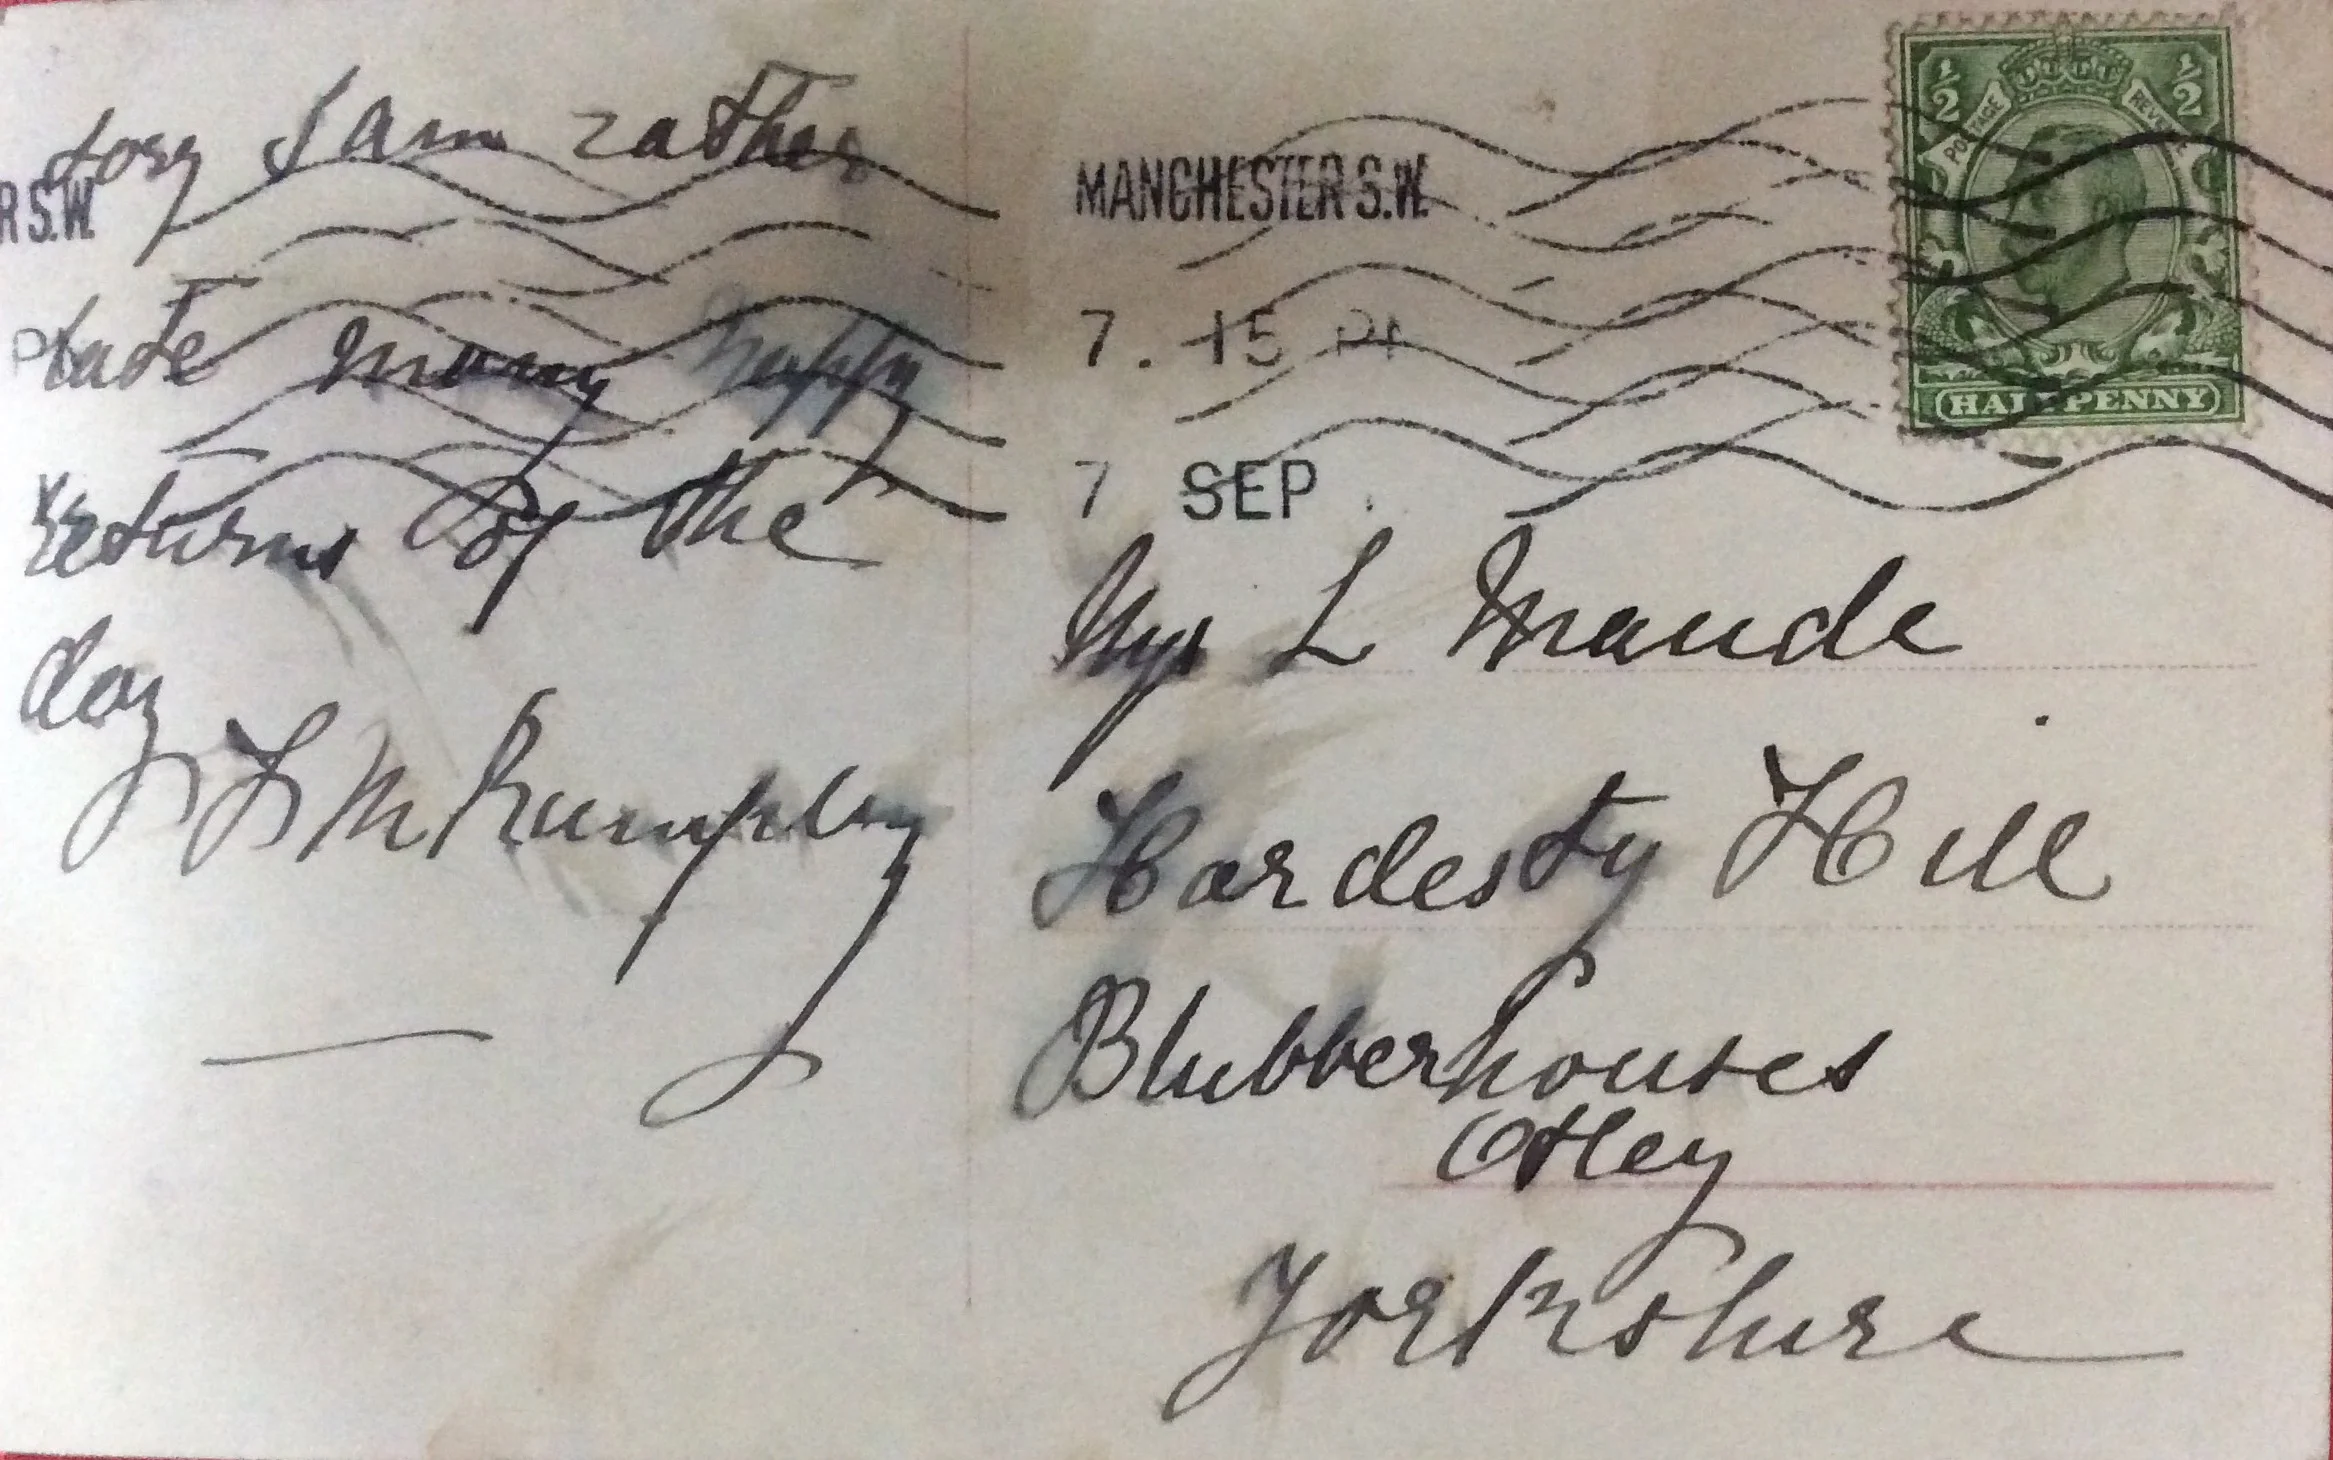 sory I am rather
plate many happy
returns of the
day
L M Rumpley
R S.W.
MANCHESTER S.W.
7. 15 P
7 SEP
½ ½
POSTAGE REVENUE
HALFPENNY
L Maude
Hardesty Hill
Blubberhouses
Otley
Yorkshire